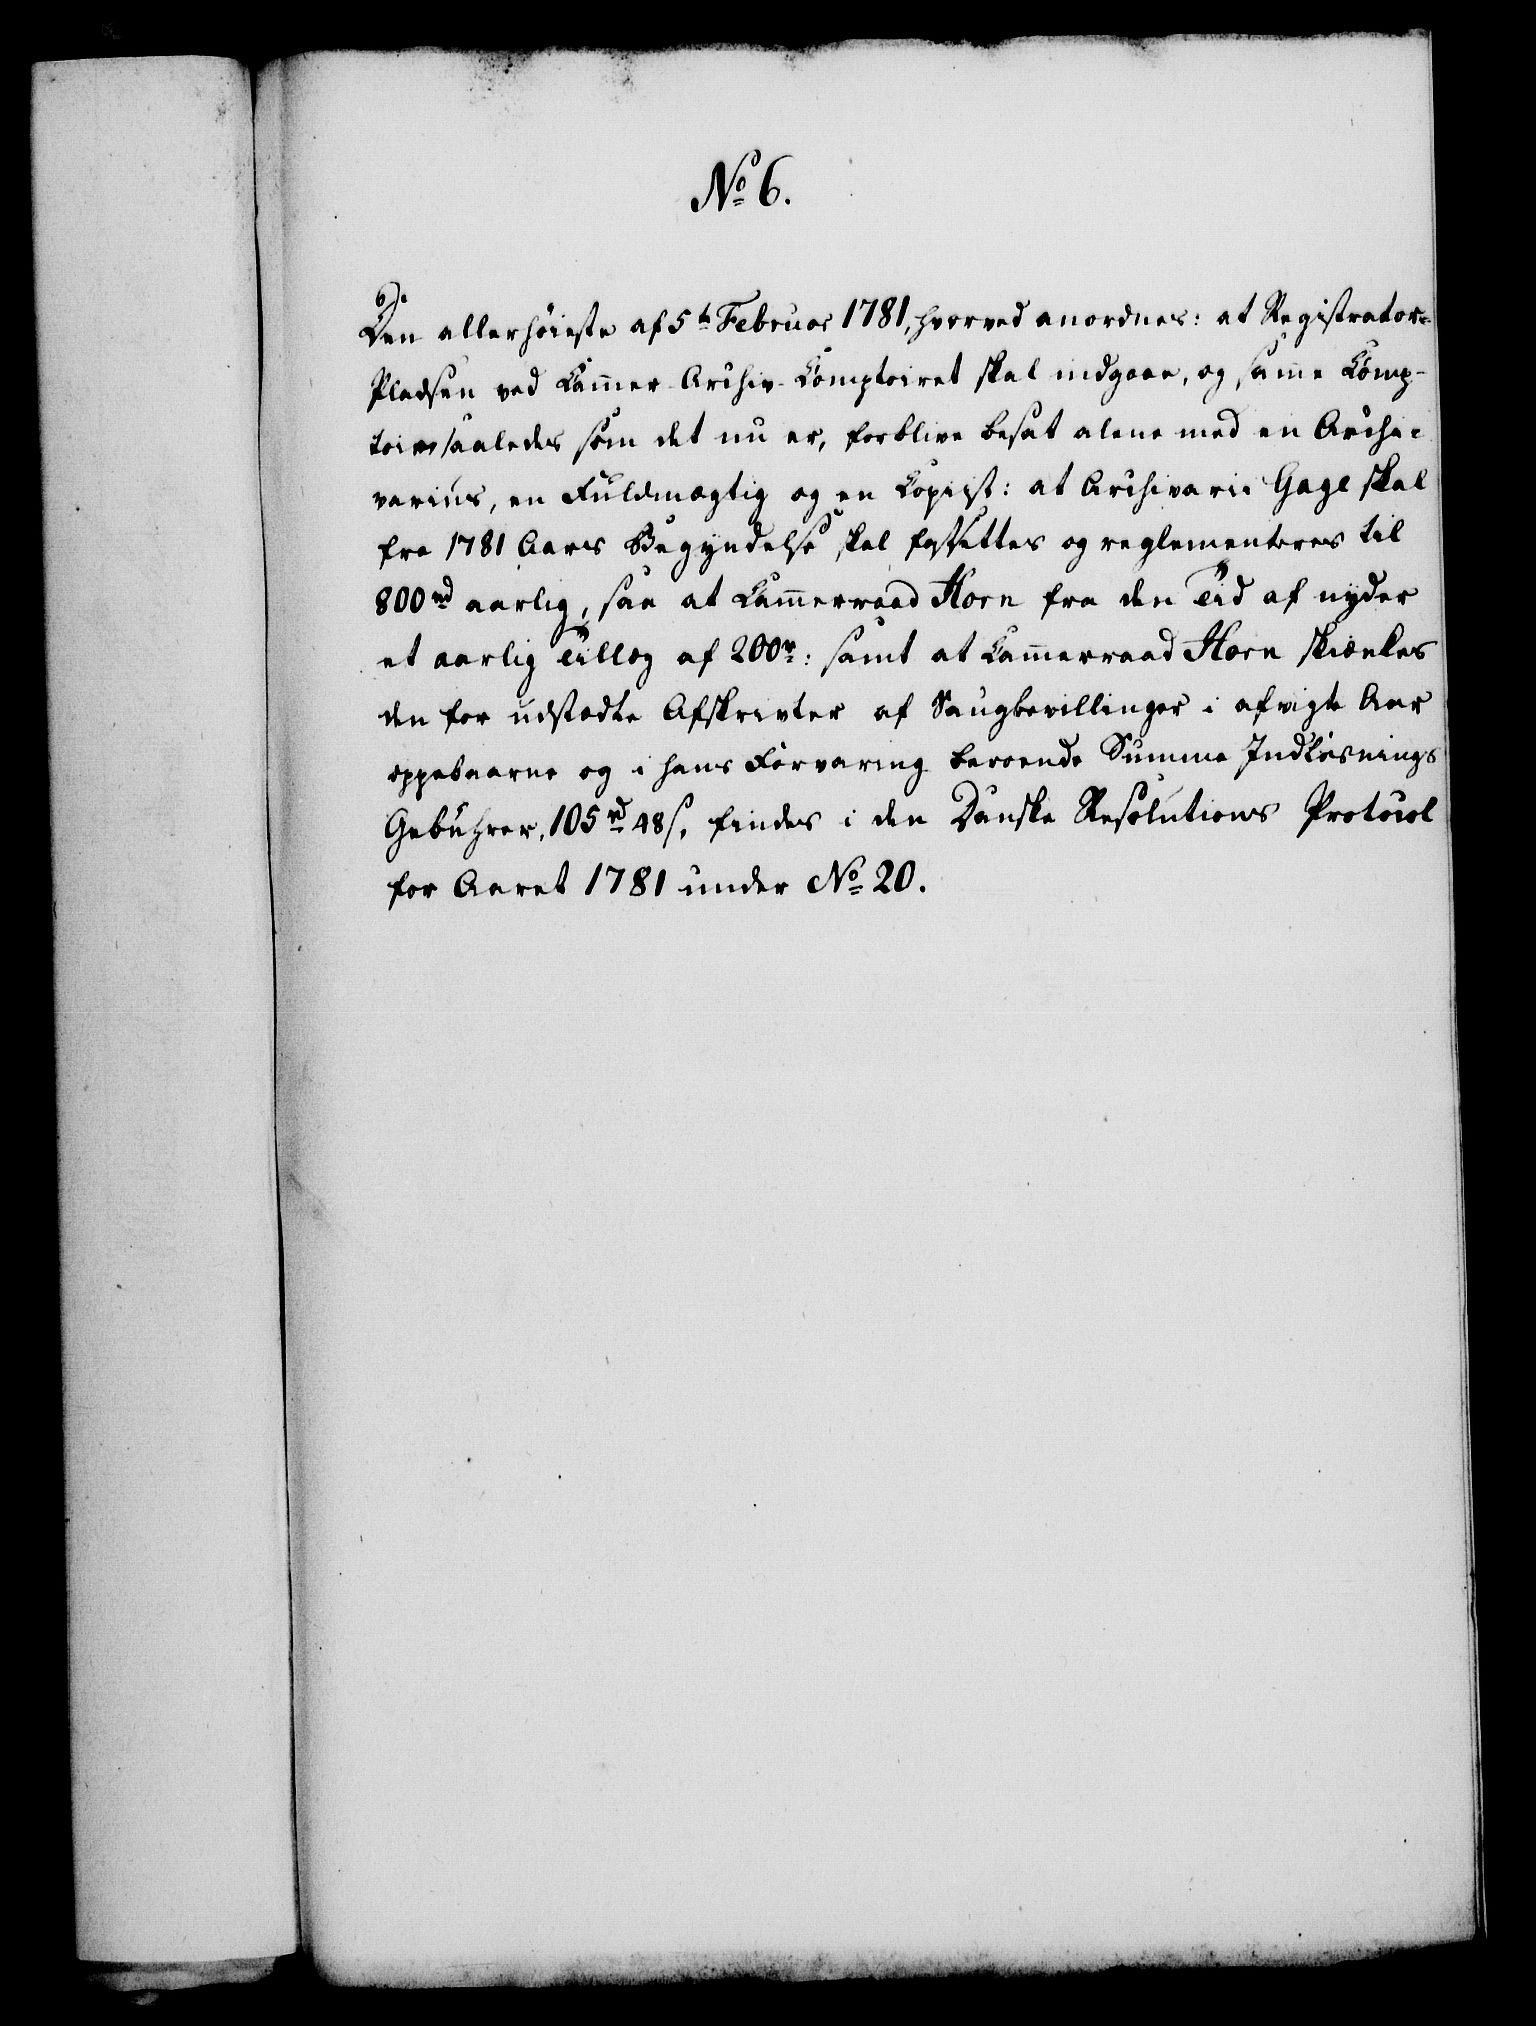 No 6.
6).
Den allerhøieste af 5te Februar 1781, hvorved anordnes: at Registrator-
Pladsen ved Cammer-Archiv-Comptoiret skal indgaae, og samme Comp-
toir saaledes som det nu er, forblive besat alene med en Archi-
varius, en Fuldmægtig og en Copiist: at Archivarii Gage skal
fra 1781 Aars Begyndelse skal fastsættes og reglementeres til
800 rd aarlig, saa at Cammerraad Horn fra den Tid af nyder
et aarlig Tillæg af 200 r: samt at Cammerraad Horn skiænkes
den for udstædte Afskrivter af Saugbevillinger i afvigte Aar
oppebaarne og i hans Forvaring beroende Summa Indløsnings
Gebuhrer, 105 rd 48 s, findes i den Danske Resolutions Protocol
for Aaret 1781 under No 20.